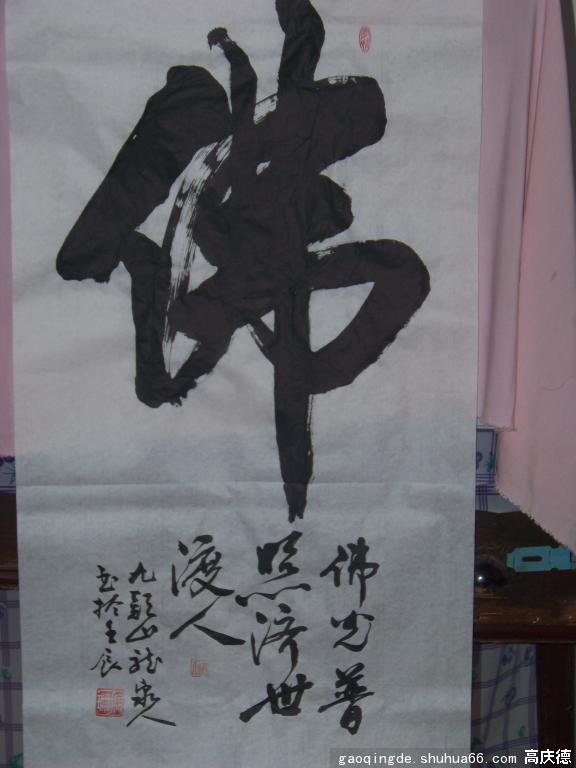 佛
佛光普
照济世
渡人
九顶山龙泉人
书於壬辰
gaoqingde.shuhua66.com 高庆德